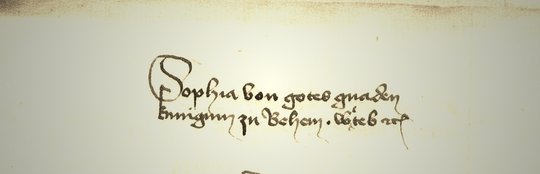 Sophia von gotes gnaden
kuniginn zu Behem. wͤteb etc